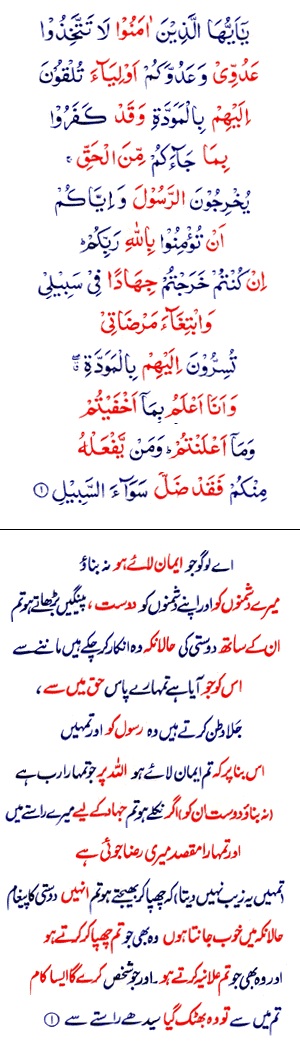 يٰۤاَيُّهَا الَّذِيْنَ اٰمَنُوْا لَا تَتَّخِذُوْا
عَدُوِّىْ وَعَدُوَّكُمْ اَوْلِيَآءَ تُلْقُوْنَ
اِلَيْهِمْ بِالْمَوَدَّةِ وَقَدْ كَفَرُوْا
بِمَا جَآءَكُمْ مِّنَ الْحَقِّ ۚ
يُخْرِجُوْنَ الرَّسُوْلَ وَاِيَّاكُمْ
اَنْ تُؤْمِنُوْا بِاللّٰهِ رَبِّكُمْ ؕ
اِنْ كُنْتُمْ خَرَجْتُمْ جِهَادًا فِىْ سَبِيْلِىْ
وَابْتِغَآءَ مَرْضَاتِىْ
تُسِرُّوْنَ اِلَيْهِمْ بِالْمَوَدَّةِ ۖ
وَاَنَا اَعْلَمُ بِمَاۤ اَخْفَيْتُمْ
وَمَاۤ اَعْلَنْتُمْ ؕ وَمَنْ يَّفْعَلْهُ
مِنْكُمْ فَقَدْ ضَلَّ سَوَآءَ السَّبِيْلِ ①
اے لوگو جو ایمان لائے ہو نہ بناؤ
میرے دشمنوں کو اور اپنے دشمنوں کو دوست ، پینگیں بڑھاتے ہو تم
ان کے ساتھ دوستی کی حالانکہ وہ انکار کرچکے ہیں ماننے سے
اس کو جو آیا ہے تمہارے پاس حق میں سے ،
جلاوطن کرتے ہیں وہ رسول کو اور تمہیں
اس بنا پر کہ تم ایمان لائے ہو اللہ پر جو تمہارا رب ہے
(نہ بناؤ دوست ان کو) اگر نکلے ہو تم جہاد کے لیے میرے راستے میں
اور تمہارا مقصد میری رضا جوئی ہے
(تمہیں یہ زیب نہیں دیتا) کہ چھپا کر بھیجتے ہو تم انہیں دوستی کا پیغام
حالانکہ میں خوب جانتا ہوں وہ بھی جو تم چھپا کر کرتے ہو
اور وہ بھی جو تم علانیہ کرتے ہو ۔ اور جو شخص کرے گا ایسا کام
تم میں سے تو وہ بھٹک گیا سیدھے راستے سے ①